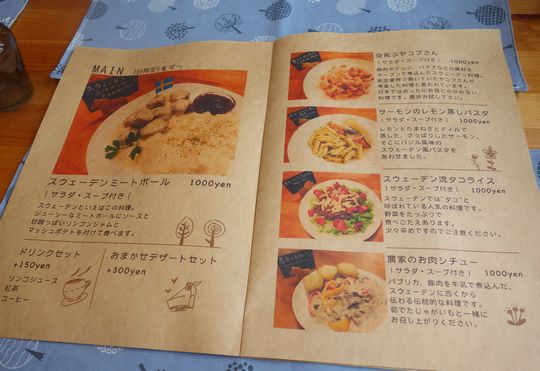 MAIN 1日限定5食ずつ
スウェーデンミートボール 1000yen
(サラダ・スープ付き)
スウェーデンといえばこの料理。
ジューシーなミートボールにソースと
甘酸っぱいリンゴンジャムと
マッシュポテトを付けて食べます。
ドリンクセット
+150yen
リンゴジュース
紅茶
コーヒー
おまかせデザートセット
+300yen
空飛ぶヤコブさん
(サラダ・スープ付き) 1000yen
鶏肉やナッツ、バナナなどの具材を
オーブンで煮込んだスウェーデン料理。
航空産業で働いていたヤコブさんが
考案した料理と言われています。
日本ではめったにお目にかかれない
料理です。是非お試し下さい。
サーモンのレモン蒸しパスタ
(サラダ・スープ付き) 1000yen
レモンとたまねぎとディルで
蒸した、さっぱりしたサーモン。
そこにバジル風味の
スウェーデン風パスタを
あわせました。
スウェーデン流タコライス
(サラダ・スープ付き) 1000yen
スウェーデンでは"タコ"と
呼ばれている人気の料理です。
野菜をたっぷりで
食べごたえあります。
少々辛めですのでご注意ください。
農家のお肉シチュー
(サラダ・スープ付き) 1000yen
パプリカ、豚肉を牛乳で煮込んだ、
スウェーデンに古くから
伝わる伝統的な料理です。
茹でたじゃがいもと一緒に
お召し上がりください。